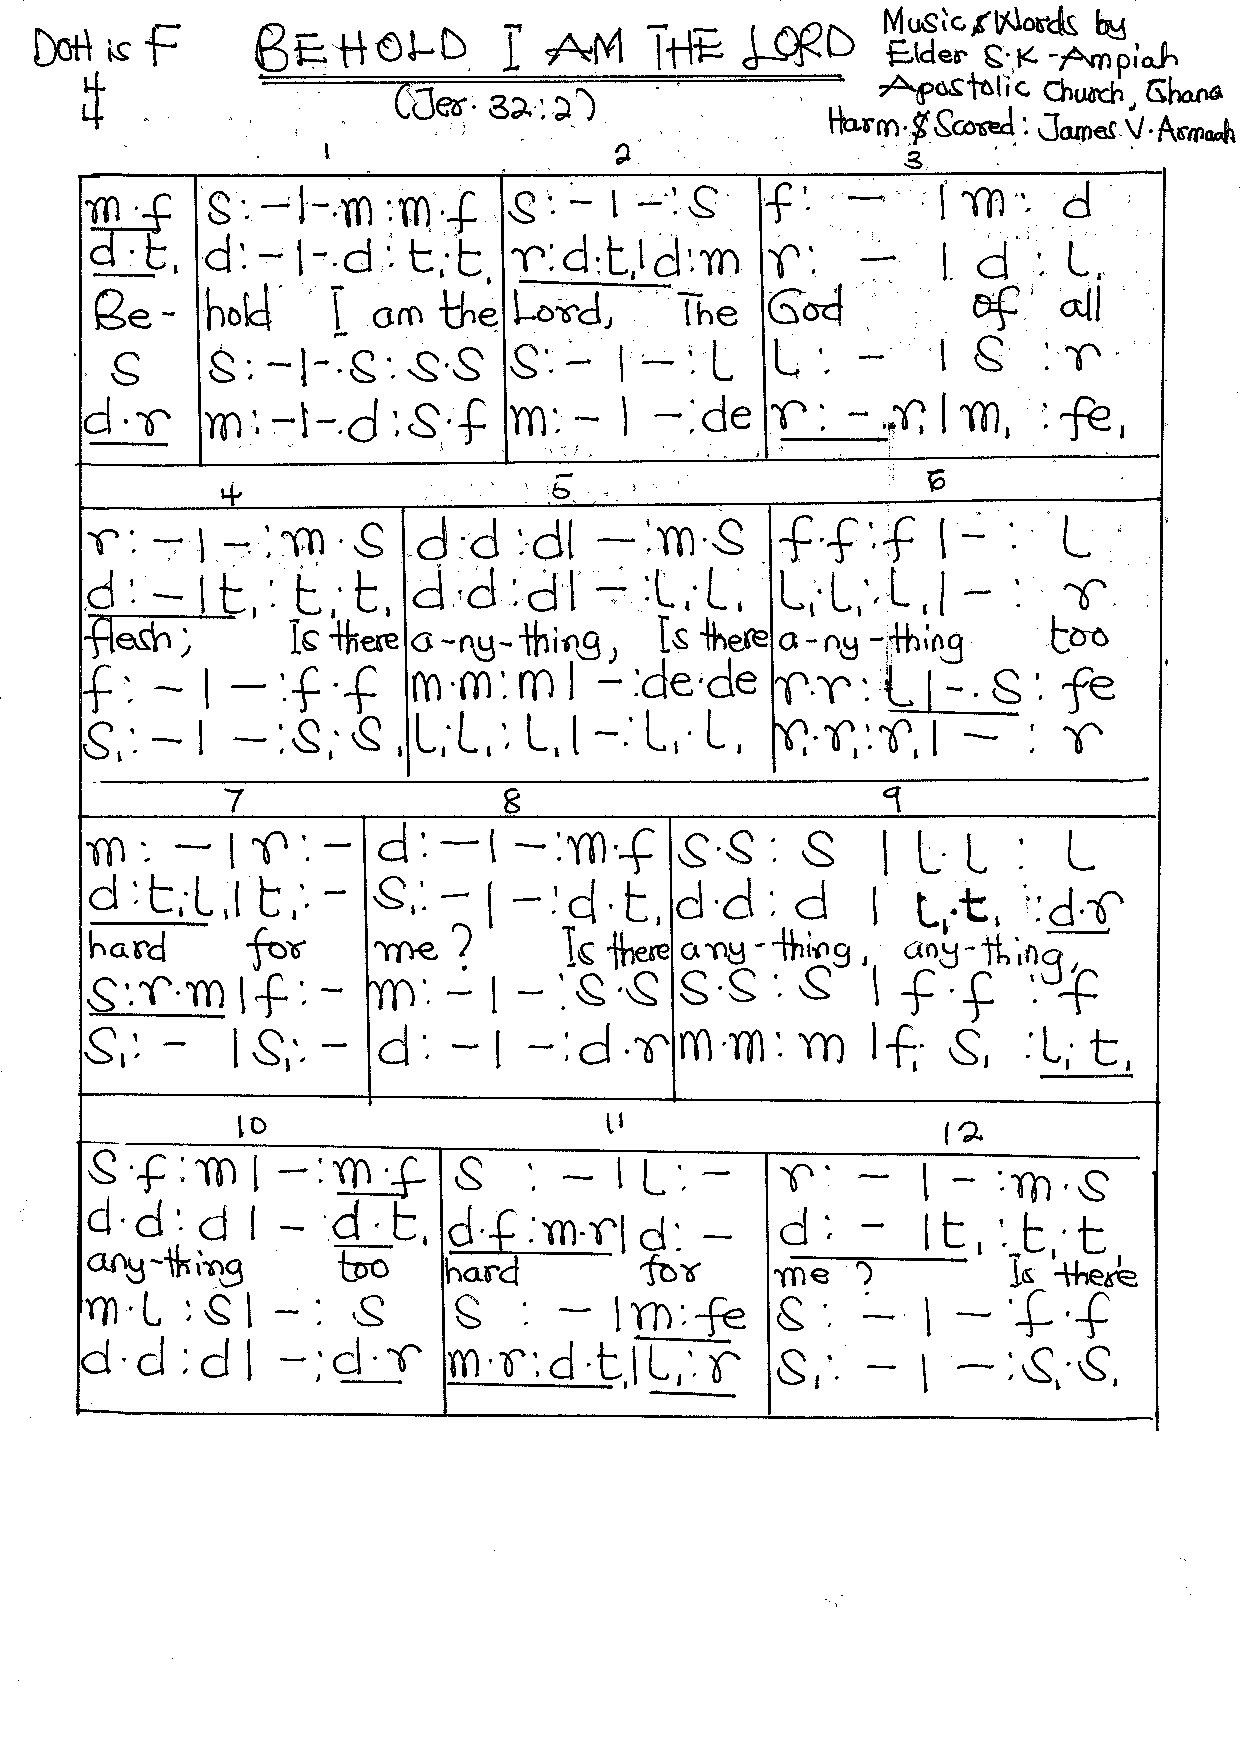 DOH is F
4
4
BEHOLD I AM THE LORD
(Jer. 32:27)
Music & Words by
Elder S.K-Ampiah
Apostolic Church, Ghana
Harm. & Scored: James V. Armaah
1 2 3
m.f | s:-|-.m:m.f | s:-|-:s | f:-|m:d
d.t, | d:-|-.d:t,.t, | r:d.t,|d:m | r:-|d:l,
Be- | hold I am the | Lord, The | God of all
s | s:-|-.s:s.s | s:-|-:l | l:-|s:r
d.r | m:-|-.d:s.f | m:-|-:de | r:-.r,|m,:fe,
4 5 6
r:-|-:m.s | d.d:d|-:m.s | f.f:f|-:l
d:-|t,:t,.t, | d.d:d|-:l,.l, | l,.l,:l,|-:r
flesh; Is there | a-ny-thing, Is there | a-ny-thing too
f:-|-:f.f | m.m:m|-:de.de | r.r:l|-.s:fe
s,:-|-:s,.s, | l,.l,:l,|-:l,.l, | r,.r,:r,|-:r
7 8 9
m:-|r:- | d:-|-:m.f | s.s:s|l.l:l
d:t,.l,|t,:- | s,:-|-:d.t, | d.d:d|t,.t,:d.r
hard for | me? Is there | any-thing, any-thing,
s:r.m|f:- | m:-|-:s.s | s.s:s|f.f:f
s,:-|s,:- | d:-|-:d.r | m.m:m|f,.s,:l,.t,
10 11 12
s.f:m|-:m.f | s:-|l:- | r:-|-:m.s
d.d:d|-d.t, | d.f:m.r|d:- | d:-|t,:t,.t,
any-thing too | hard for | me? Is there
m.l:s|-:s | s:-|m:fe | s:-|-:f.f
d.d:d|-:d.r | m.r:d.t,|l,:r | s,:-|-:s,.s,